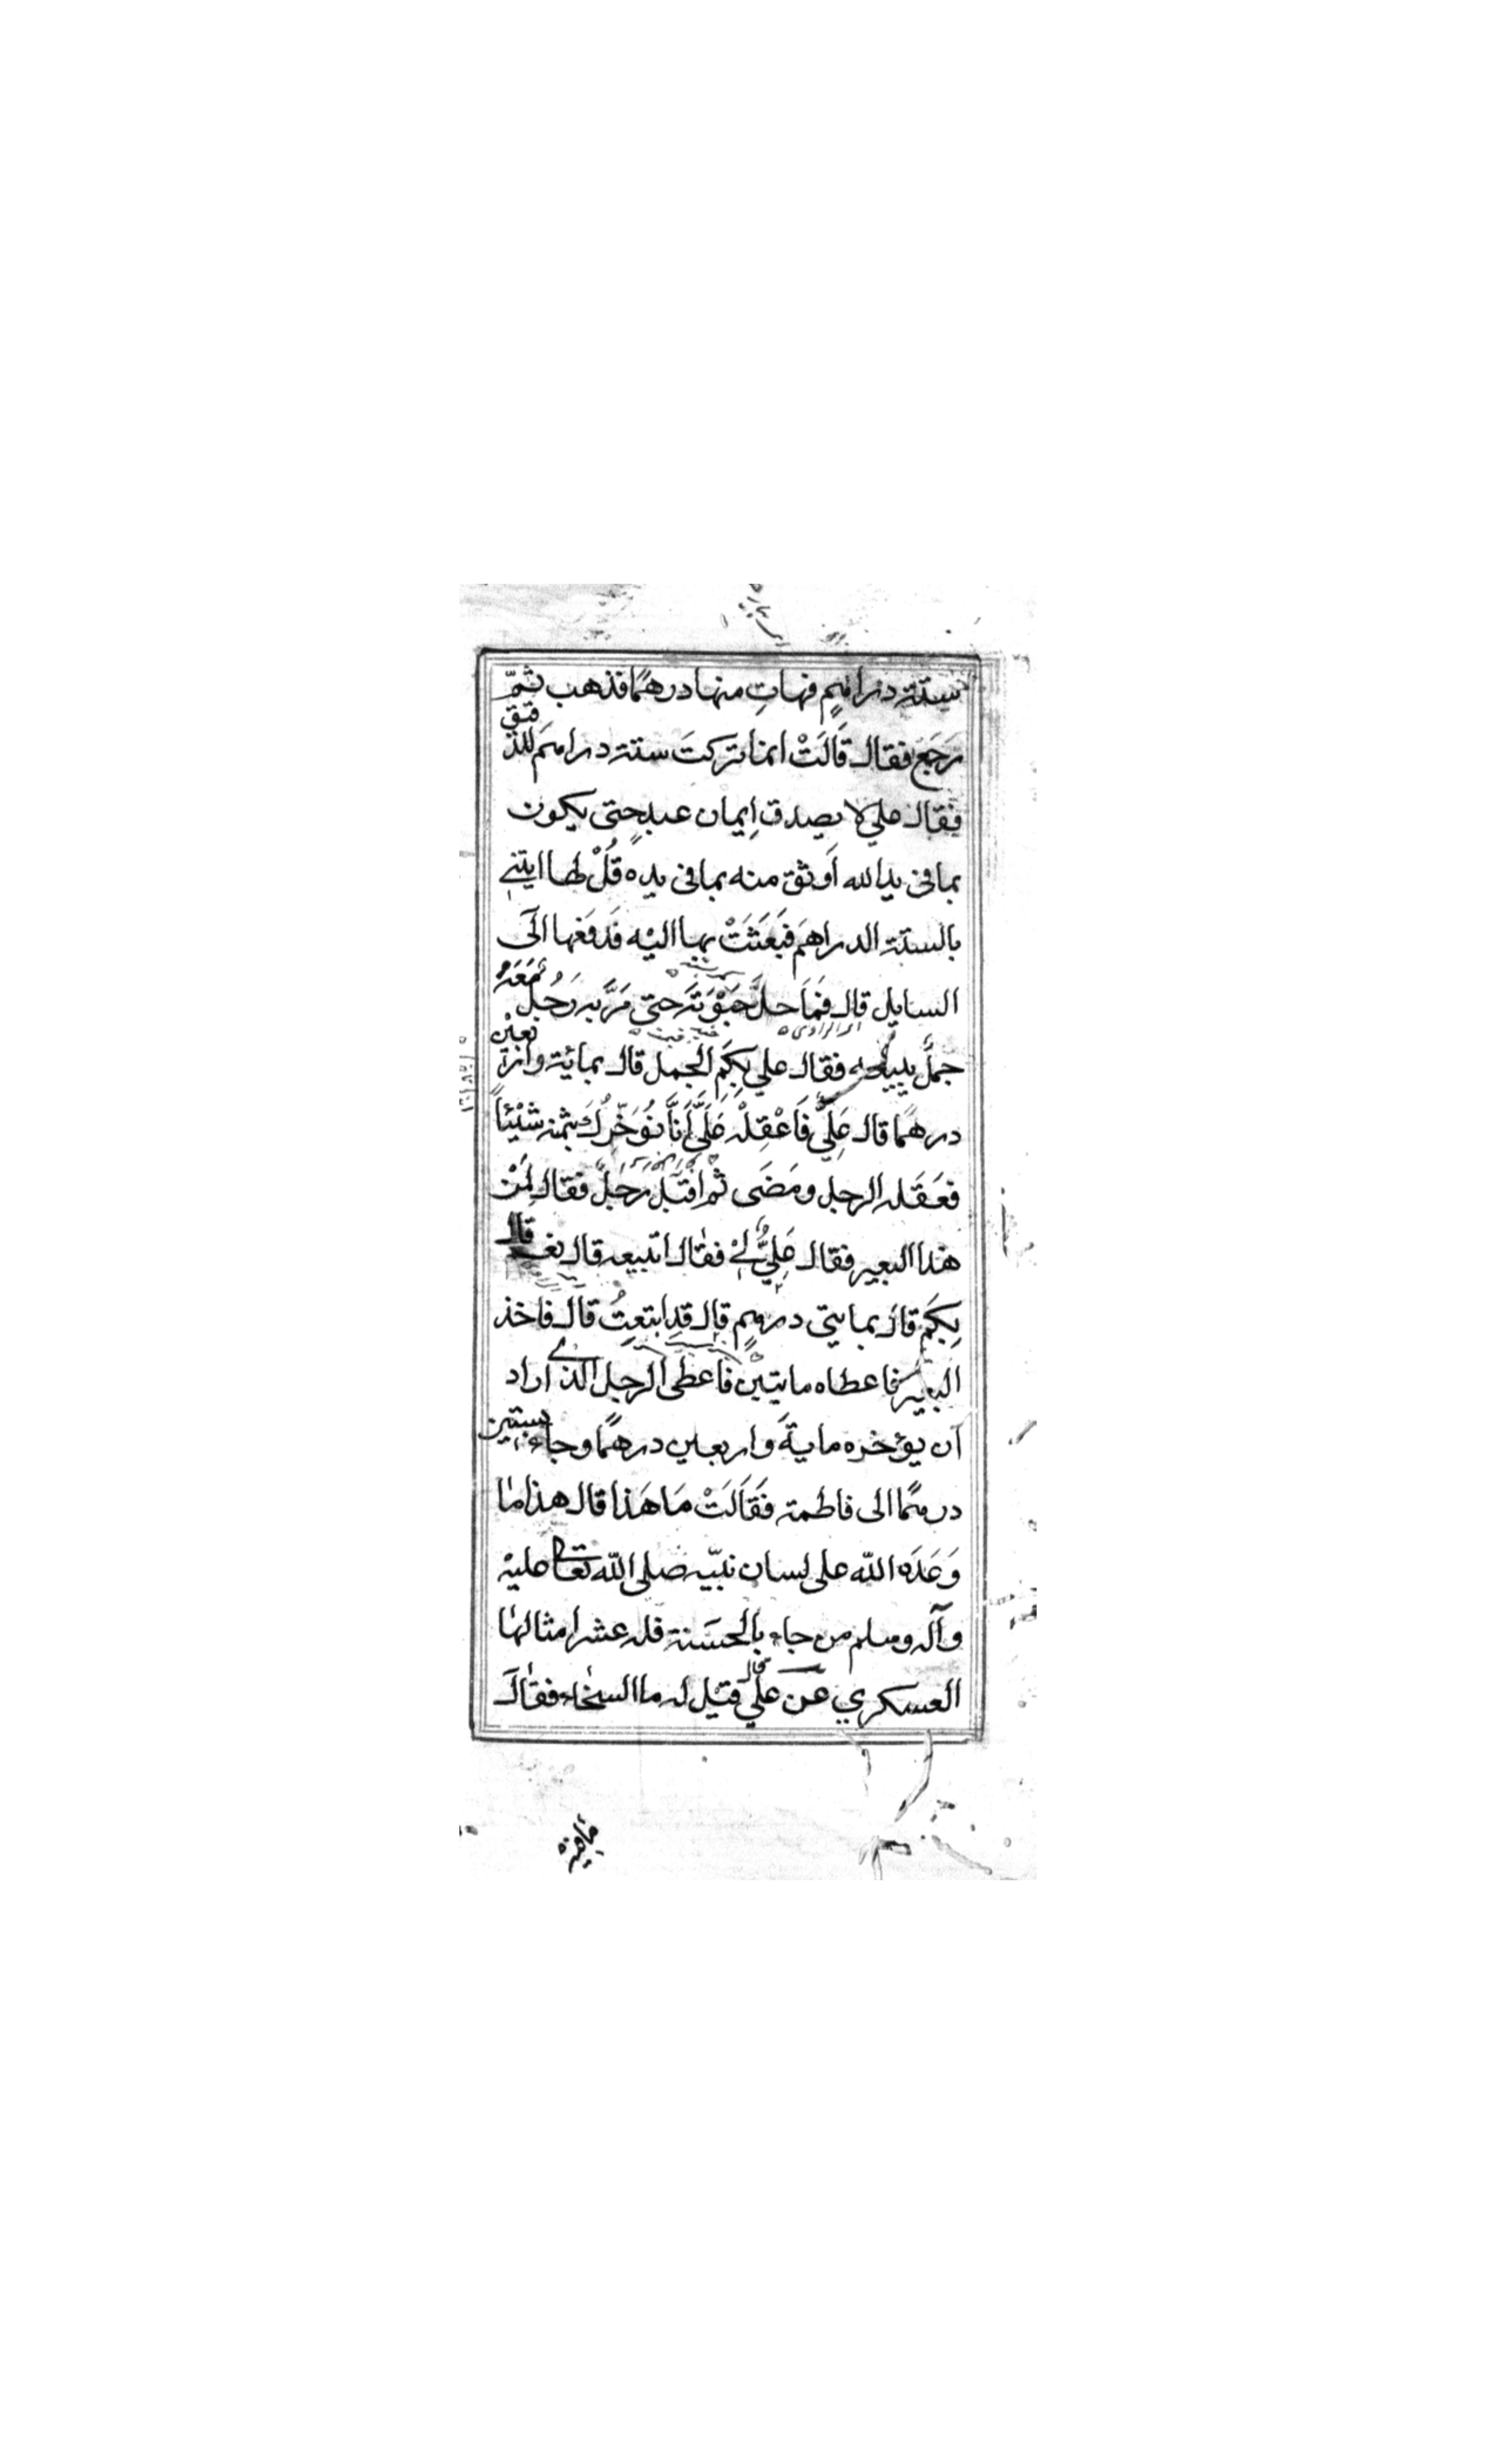 ستة دراهم فهاتِ منها درهمًا فذهب ثمّ
رَجَعَ فقال قَالَتْ انما تركتَ ستة دراهمَ للدقيق
فقال علي لا يصدق اِيمان عبدٍ حتى يكون
بما فى يد الله اَوثق منه بما فى يده قُلْ لها ايتنى
بالستة الدراهمَ فَبَعَثَتْ بها اليْه فَدفعَها الَى
السايل قال فَمَا حلَّ حَبْوَتَه حتى مَرَّ به رَجُلٌ مَعَهُ
جملٌ يبيعه فقال علي بِكَمِ الجمل قال بمائة واربعين
درهمًا قال عَلِيٌّ فَاعْقِلْهُ عَلَىَّ اَنَّا نُؤَخِّرُكَ بثمنه شَيْئًا
فعَقَله الرجل ومَضَى ثم اقبَلَ رَجُلٌ فقال لِمَنْ
هذا البعير فقال عَلِيٌّ لِىْ فقال اتبيعه قال نعم قال
بِكَمْ قال بمايتى درهمٍ قال قد ابتعتُ قال فاخذ
البعير فاعطاه مايتين فاعطى الرجل الذى اراد
ان يؤخره مايةً واربعين درهمًا وجاء بستين
درهمًا الى فاطمة فَقَالَتْ مَا هَذا قال هذا ما
وَعَدَه اللّه على لسان نبيّه صلى اللّه تعالى عليه
وآله وسلم من جاء بالحسَنة فله عشر امثالها
العسكري عن علي قال قيْل له ما السخاء فقال